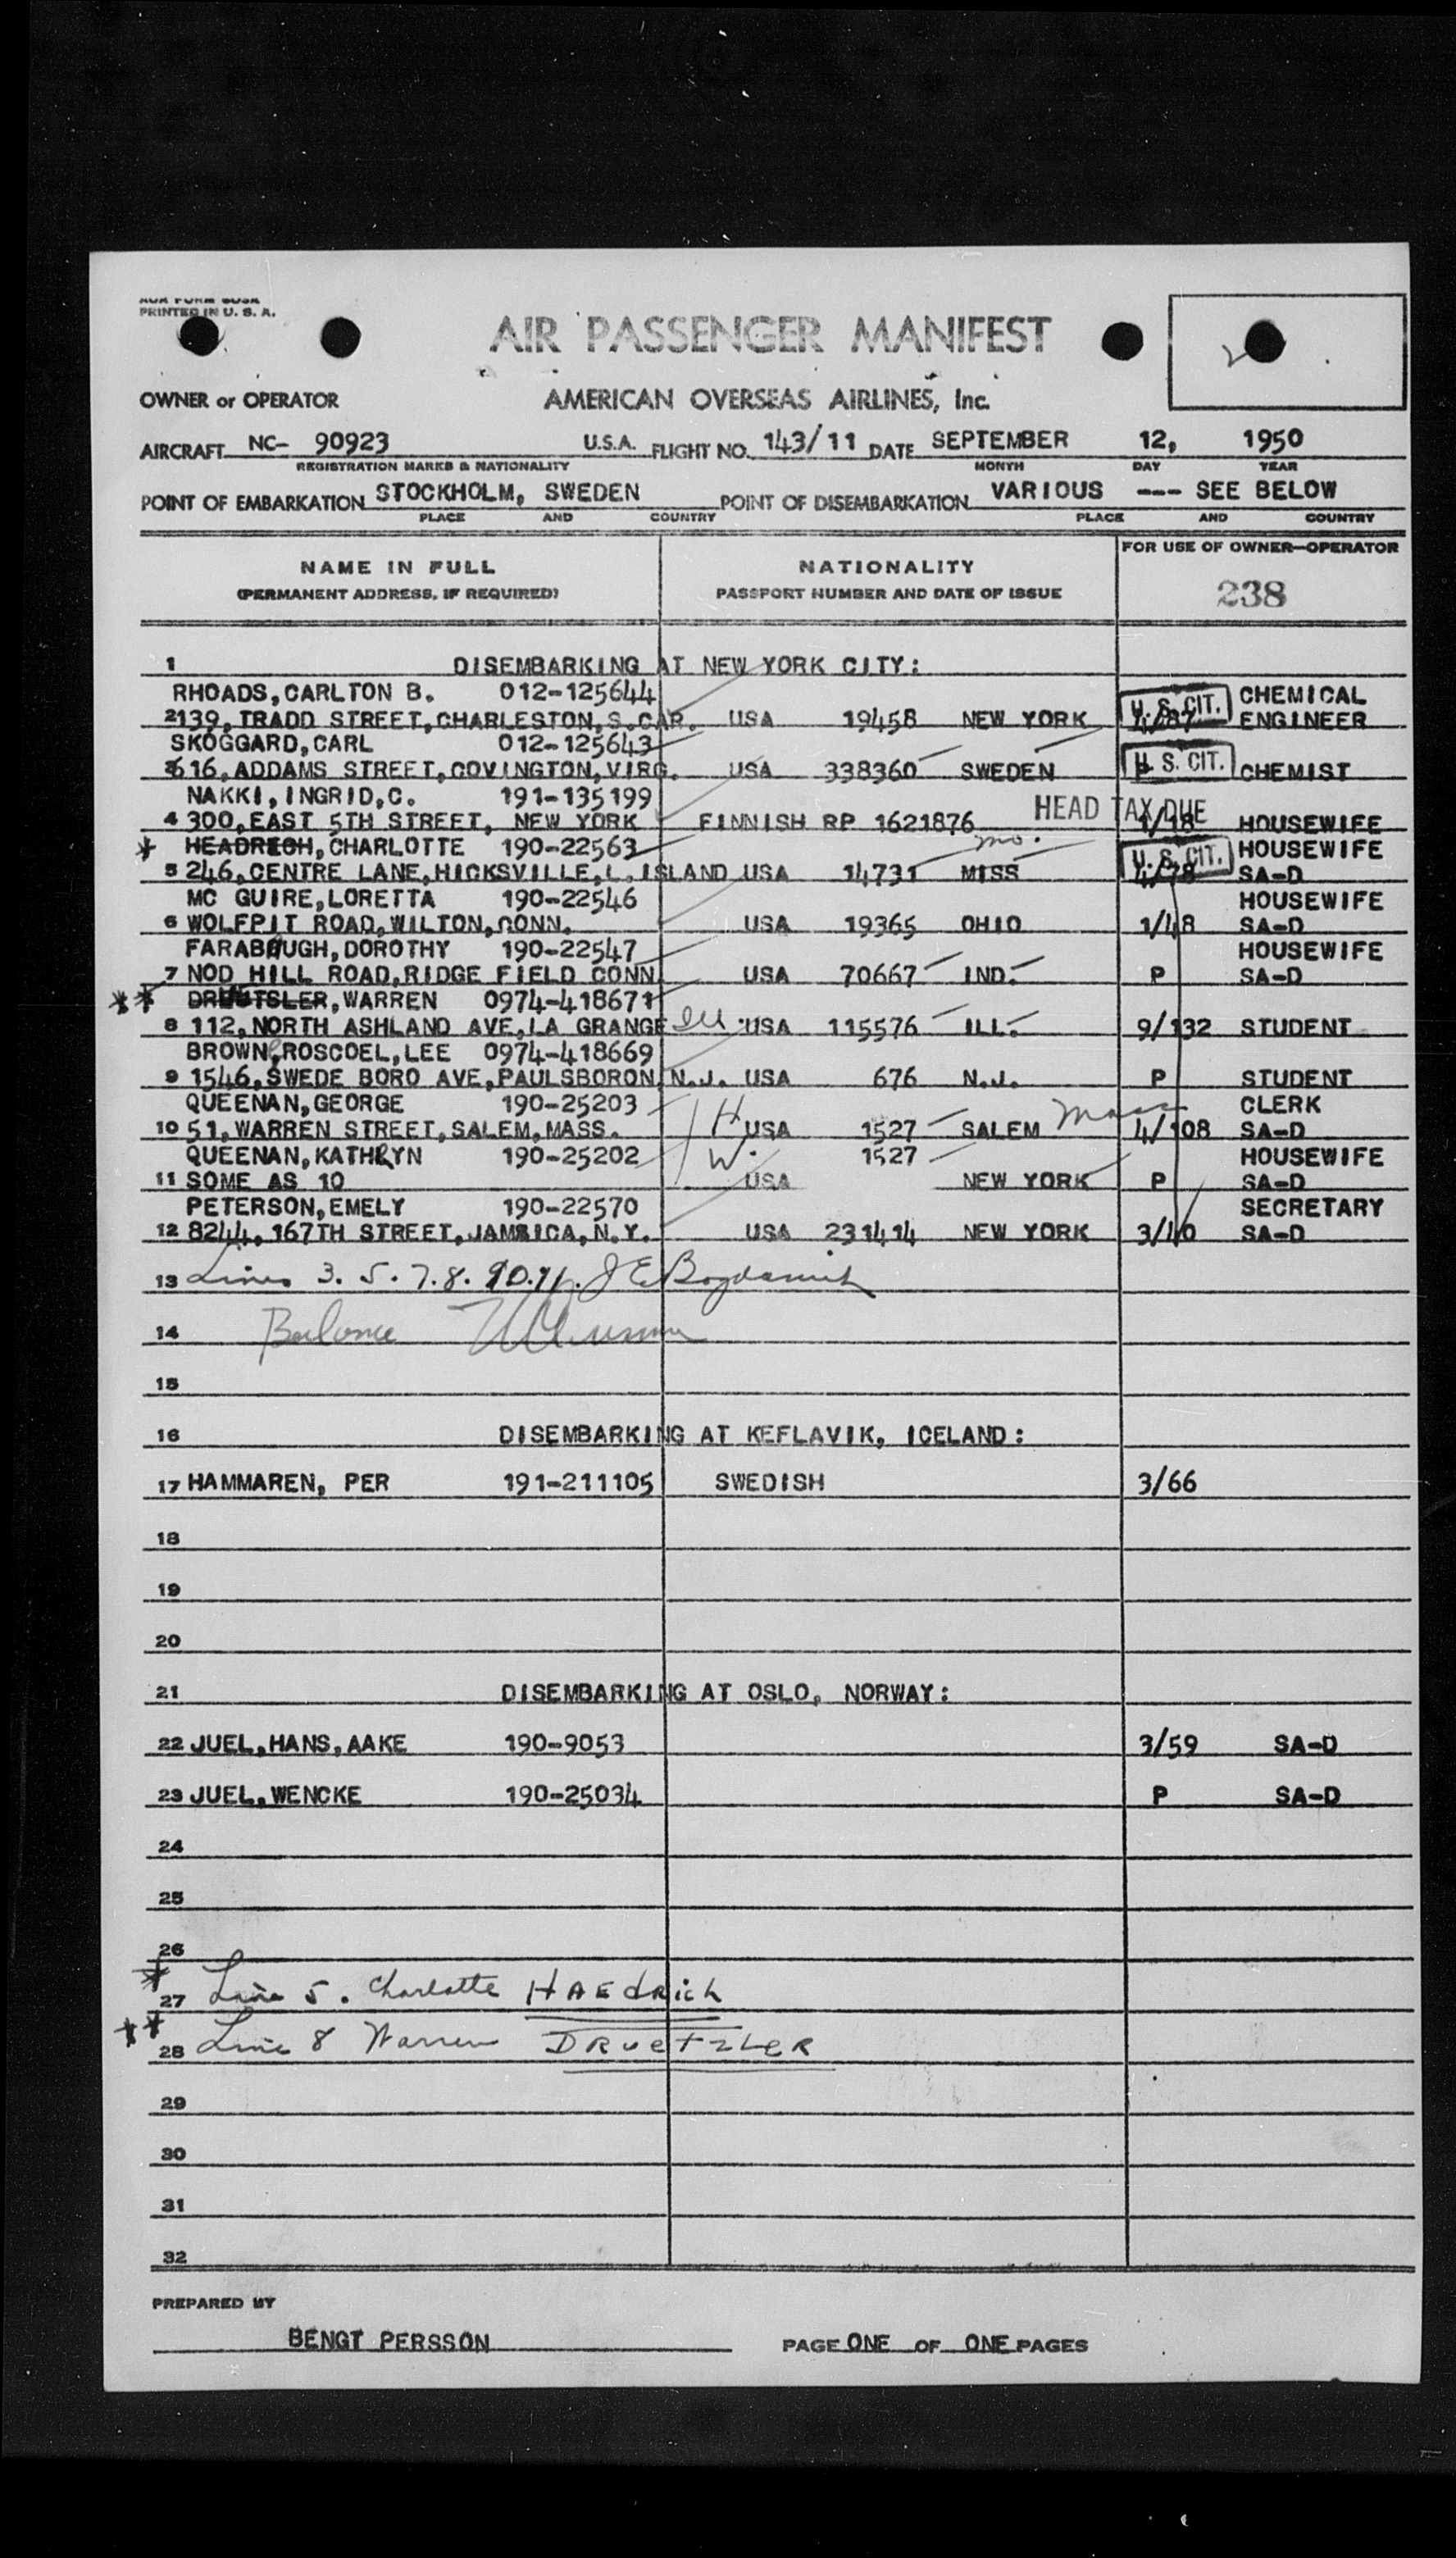 PRINTED IN U. S. A.
AIR PASSENGER MANIFEST
OWNER or OPERATOR AMERICAN OVERSEAS AIRLINES, Inc.
AIRCRAFT NC- 90923 U.S.A. FLIGHT NO. 143/11 DATE SEPTEMBER 12, 1950
REGISTRATION MARKS & NATIONALITY MONTH DAY YEAR
POINT OF EMBARKATION STOCKHOLM, SWEDEN POINT OF DISEMBARKATION VARIOUS --- SEE BELOW
PLACE AND COUNTRY PLACE AND COUNTRY
NAME IN FULL NATIONALITY FOR USE OF OWNER-OPERATOR
(PERMANENT ADDRESS, IF REQUIRED) PASSPORT NUMBER AND DATE OF ISSUE 238
1 DISEMBARKING AT NEW YORK CITY:
RHOADS, CARLTON B. 012-125644 U. S. CIT. CHEMICAL
2 139, TRADD STREET, CHARLESTON, S.CAR. USA 19458 NEW YORK ENGINEER
SKOGGARD, CARL 012-125643
3 616, ADDAMS STREET, COVINGTON, VIRG. USA 338360 SWEDEN U. S. CIT. CHEMIST
NAKKI, INGRID, C. 191-135199 HEAD TAX DUE
4 300, EAST 5TH STREET, NEW YORK FINNISH RP 1621876 1/18 HOUSEWIFE
* HEADRECH, CHARLOTTE 190-22563 mo. U. S. CIT. HOUSEWIFE
5 246, CENTRE LANE, HICKSVILLE, L. ISLAND USA 14731 MISS 4/78 SA-D
MC GUIRE, LORETTA 190-22546 HOUSEWIFE
6 WOLFPIT ROAD, WILTON, CONN. USA 19365 OHIO 1/48 SA-D
FARABAUGH, DOROTHY 190-22547 HOUSEWIFE
7 NOD HILL ROAD, RIDGE FIELD CONN USA 70667 IND. P SA-D
** DRUETSLER, WARREN 0974-418671
8 112, NORTH ASHLAND AVE, LA GRANGE Ill USA 115576 ILL. 9/132 STUDENT
BROWN, ROSCOEL, LEE 0974-418669
9 1546, SWEDE BORO AVE, PAULSBORON, N.J. USA 676 N.J. P STUDENT
QUEENAN, GEORGE 190-25203 CLERK
10 51, WARREN STREET, SALEM, MASS. H USA 1527 SALEM Mass 4/108 SA-D
QUEENAN, KATHRYN 190-25202 W. 1527 HOUSEWIFE
11 SOME AS 10 USA NEW YORK P SA-D
PETERSON, EMELY 190-22570 SECRETARY
12 8244, 167TH STREET, JAMAICA, N.Y. USA 231414 NEW YORK 3/40 SA-D
13 Lines 3. 5. 7. 8. 9. 10. 11. J E
14 Balance
15
16 DISEMBARKING AT KEFLAVIK, ICELAND:
17 HAMMAREN, PER 191-211105 SWEDISH 3/66
18
19
20
21 DISEMBARKING AT OSLO, NORWAY:
22 JUEL, HANS, AAKE 190-9053 3/59 SA-D
23 JUEL, WENCKE 190-25034 P SA-D
24
25
26
* 27 Line 5. Charlotte HAEdRich
** 28 Line 8 Warren DRUETZLER
29
30
31
32
PREPARED BY
BENGT PERSSON PAGE ONE OF ONE PAGES